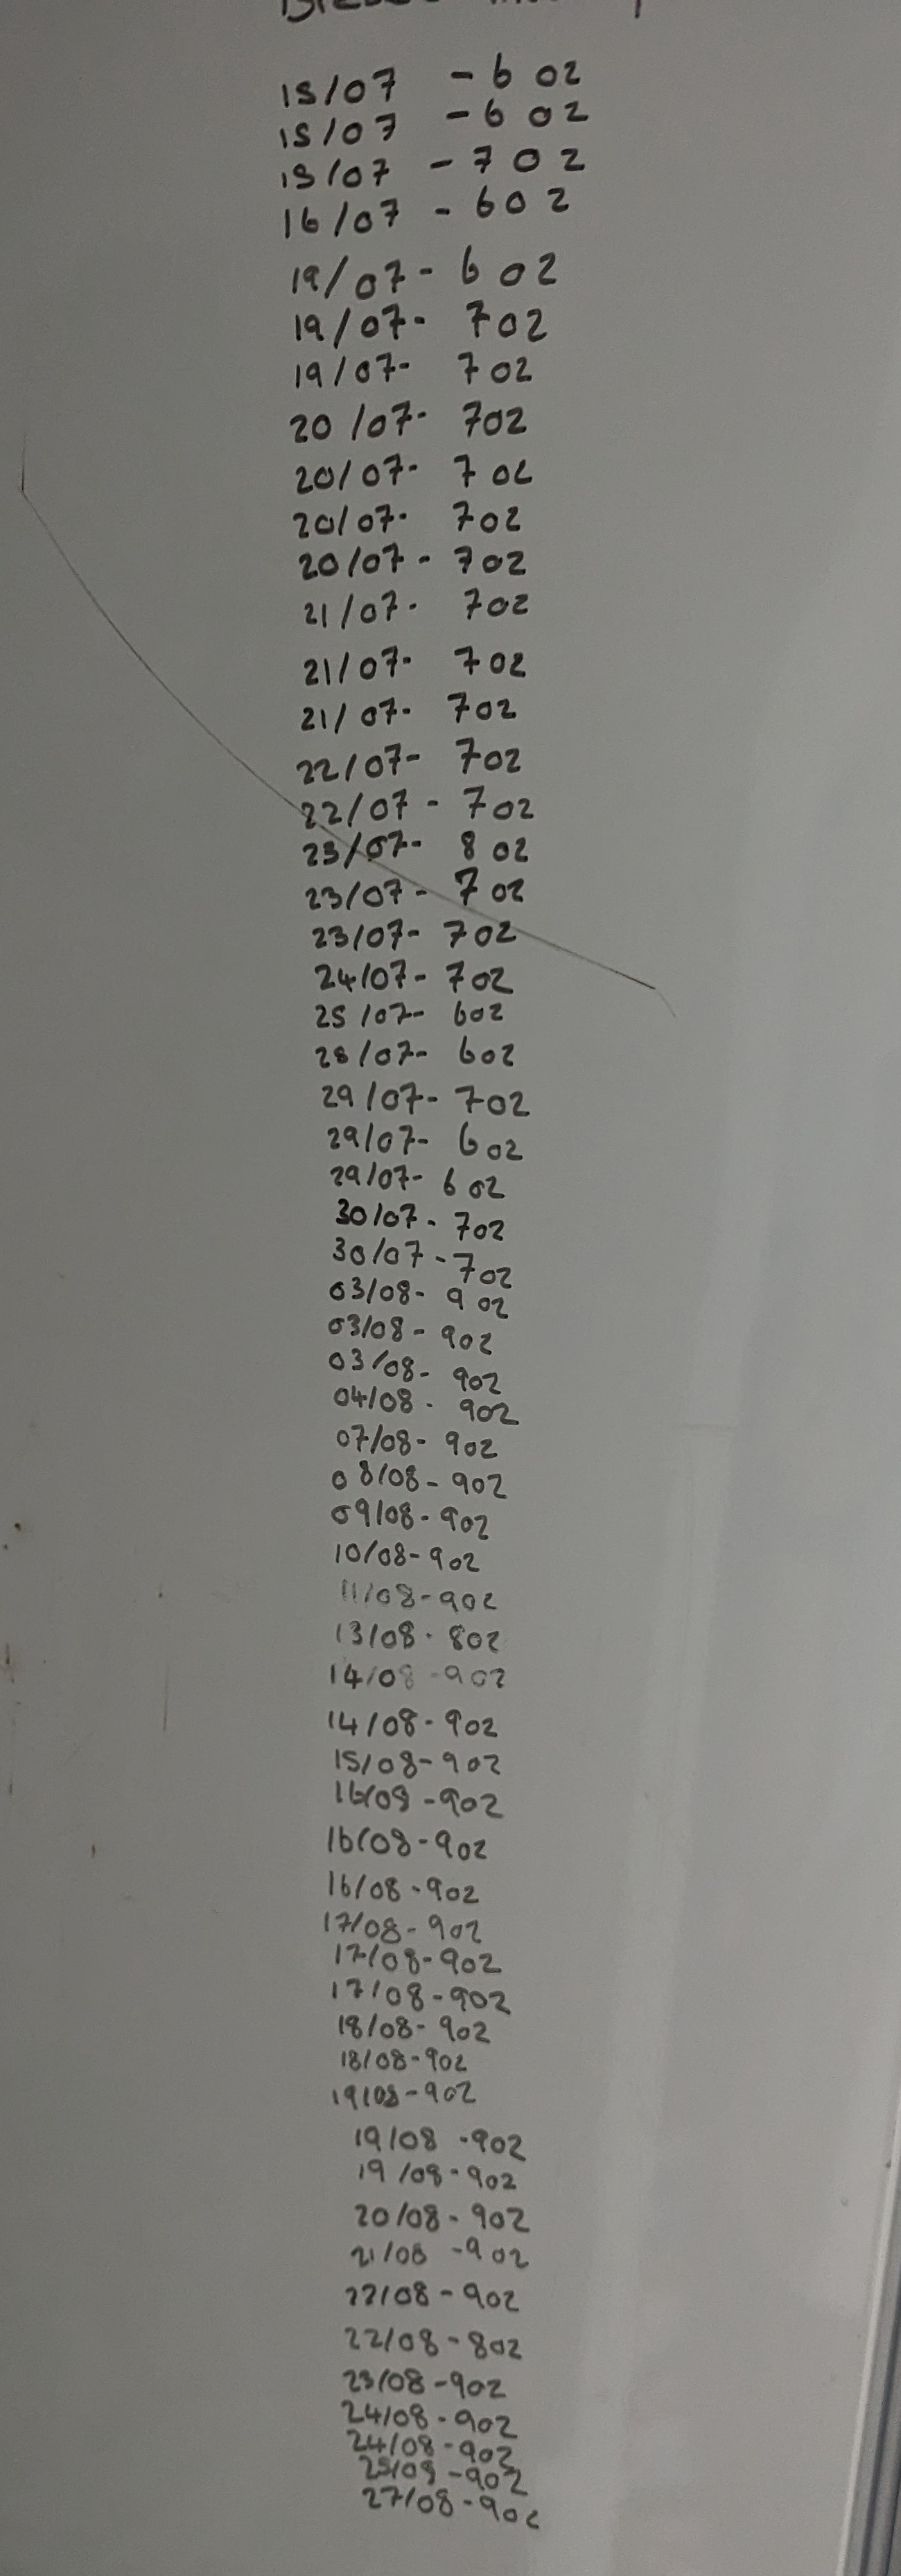 15/07 - 6 oz
15/07 - 6 oz
15/07 - 7 oz
16/07 - 6 oz
19/07 - 6 oz
19/07 - 7 oz
19/07 - 7 oz
20/07 - 7 oz
20/07 - 7 oz
20/07 - 7 oz
20/07 - 7 oz
21/07 - 7 oz
21/07 - 7 oz
21/07 - 7 oz
22/07 - 7 oz
22/07 - 7 oz
23/07 - 8 oz
23/07 - 7 oz
23/07 - 7 oz
24/07 - 7 oz
25/07 - 6 oz
28/07 - 6 oz
29/07 - 7 oz
29/07 - 6 oz
29/07 - 6 oz
30/07 - 7 oz
30/07 - 7 oz
03/08 - 9 oz
03/08 - 9 oz
03/08 - 9 oz
04/08 - 9 oz
07/08 - 9 oz
08/08 - 9 oz
09/08 - 9 oz
10/08 - 9 oz
11/08 - 9 oz
13/08 - 8 oz
14/08 - 9 oz
14/08 - 9 oz
15/08 - 9 oz
16/08 - 9 oz
16/08 - 9 oz
16/08 - 9 oz
17/08 - 9 oz
17/08 - 9 oz
17/08 - 9 oz
18/08 - 9 oz
18/08 - 9 oz
19/08 - 9 oz
19/08 - 9 oz
19/08 - 9 oz
20/08 - 9 oz
21/08 - 9 oz
22/08 - 9 oz
22/08 - 8 oz
23/08 - 9 oz
24/08 - 9 oz
24/08 - 9 oz
25/08 - 9 oz
27/08 - 9 oz